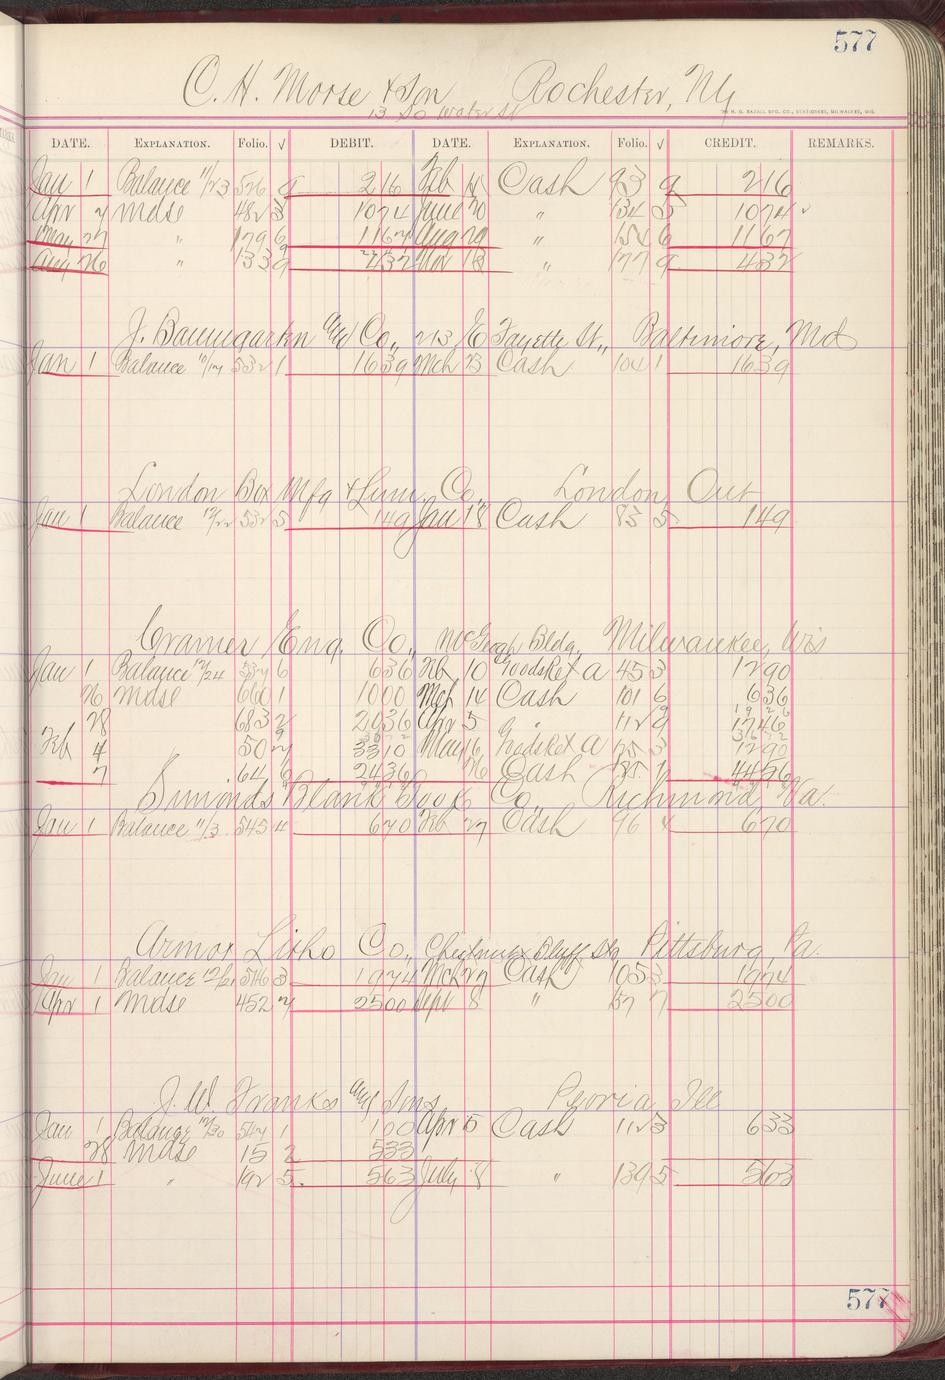 577
C. H. Morse & Son Rochester, NY
13 So Water St
DATE. EXPLANATION. Folio. √ DEBIT. DATE. EXPLANATION. Folio. √ CREDIT. REMARKS.
Jan 1 Balance 11/23 526 9 216 Feb 14 Cash 93 9 216
Apr 7 Mdse 482 3 1074 June 20 " 134 5 1074
May 27 " 179 6 1167 Aug 29 " 154 6 1167
Aug 26 " 133 9 432 Nov 18 " 177 9 432
J. Baumgarten and Co., 213 E Fayette St., Baltimore, Md
Jan 1 Balance 10/17 532 1 1639 Mch 23 Cash 104 1 1639
London Box Mfg & Lum. Co., London Ont
Jan 1 Balance 12/22 532 5 149 Jan 18 Cash 83 5 149
Cramer Eng. Co., McGeogh Bldg., Milwaukee, Wis
Jan 1 Balance 12/24 537 6 636 Feb 10 Goods Ret a 45 3 1290
26 Mdse 660 1 1000 Mch 14 Cash 101 6 636
28 683 2 2036 Apr 5 " 112 9 1746
Feb 4 50 7 3310 May 16 Goods Ret a 3 1290
7 64 6 2436 26 Cash 1 4456
Simonds Blank Book Co., Richmond, Va.
Jan 1 Balance 11/3 545 4 670 Feb 27 Cash 96 4 670
Armor Litho Co., Chestnut & Bluff Sts, Pittsburg, Pa.
Jan 1 Balance 546 3 1974 Mch 27 Cash 105 3 1974
Apr 1 Mdse 452 7 2500 Sept 8 " 157 7 2500
J. W. Franks and Sons Peoria Ill
Jan 1 Balance 12/30 547 1 100 Apr 5 Cash 112 3 633
28 Mdse 15 2 533
June 1 " 192 5 563 July 8 " 139 5 563
577